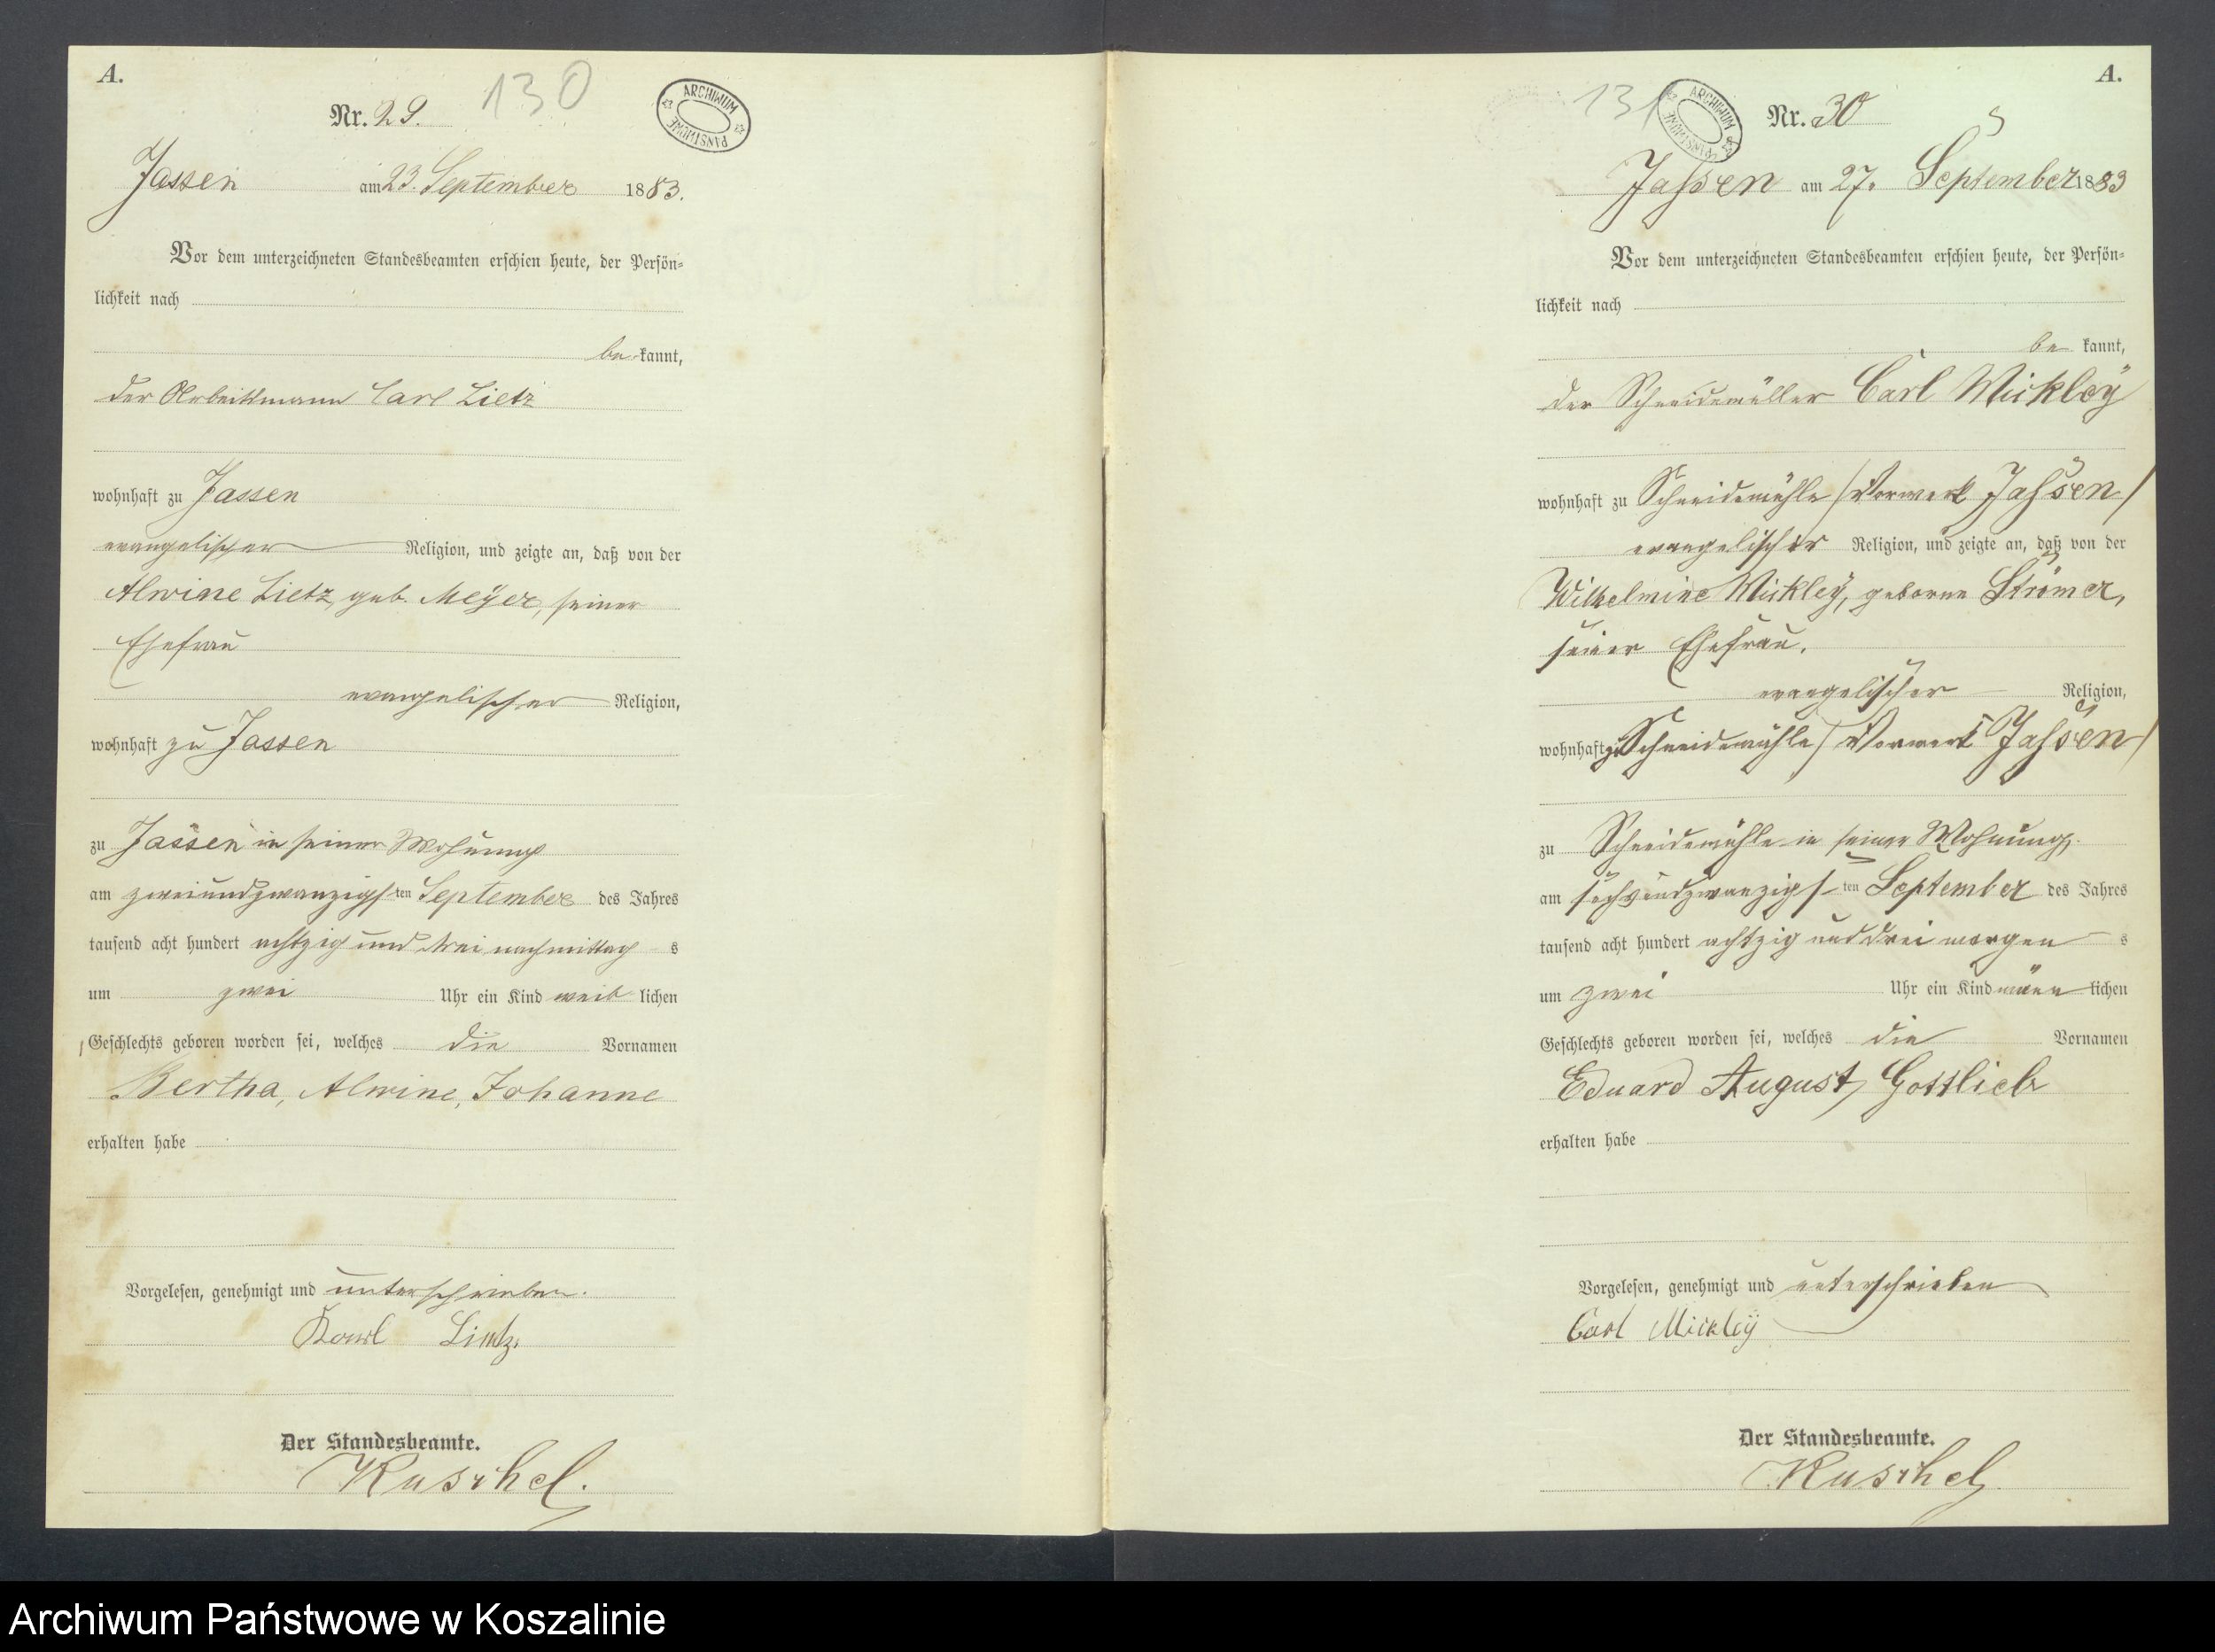 A.
130
ARCHIWUM PAŃSTWOWE
Nr. 29.
Jassen am 23. September 1883.
Vor dem unterzeichneten Standesbeamten erschien heute, der Persön-
lichkeit nach
be kannt,
der Arbeitsmann Carl Lietz
wohnhaft zu Jassen
evangelischer Religion, und zeigte an, daß von der
Alwine Lietz, geb. Meÿer, seiner
Ehefrau
evangelischer Religion,
wohnhaft zu Jassen
zu Jassen in seiner Wohnung
am zweiundzwanzigsten September des Jahres
tausend acht hundert achtzig und drei nachmittag s
um zwei Uhr ein Kind weib lichen
Geschlechts geboren worden sei, welches die Vornamen
Bertha, Alwine, Johanne
erhalten habe
Vorgelesen, genehmigt und unterschrieben.
Karl Lietz
Der Standesbeamte.
Kuschel.
A.
131
ARCHIWUM PAŃSTWOWE
Nr. 30
Jassen am 27. September 1883
Vor dem unterzeichneten Standesbeamten erschien heute, der Persön-
lichkeit nach
be kannt,
der Schneidemüller Carl Mickleÿ
wohnhaft zu Schneidemühle /Vorwerk Jassen/
evangelischer Religion, und zeigte an, daß von der
Wilhelmine Mickleÿ, geborne Strömer,
seiner Ehefrau.
evangelischer Religion,
wohnhaft zu Schneidemühle /Vorwerk Jassen/
zu Schneidemühle in seiner Wohnung.
am sechsundzwanzigsten September des Jahres
tausend acht hundert achtzig und drei morgen s
um zwei Uhr ein Kind männ lichen
Geschlechts geboren worden sei, welches die Vornamen
Eduard August, Gottlieb
erhalten habe
Vorgelesen, genehmigt und unterschrieben
Carl Mickleÿ
Der Standesbeamte.
Kuschel.
Archiwum Państwowe w Koszalinie